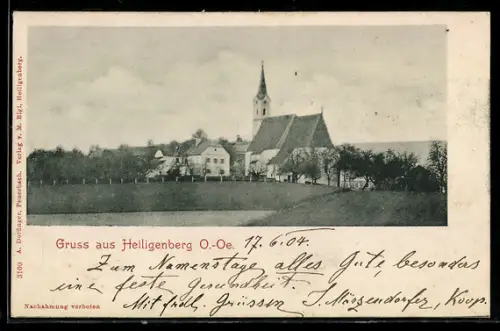 3100 A. Dorfinger, Peuerbach. Verlag v. M. Bigl, Heiligenberg.
Gruss aus Heiligenberg O.-Oe. 17.6.04.
Zum Namenstage alles Gute, besonders
eine feste Gesundheit.
Mit frdl. Grüssen J. Mörzendorfer, Koop.
Nachahmung verboten